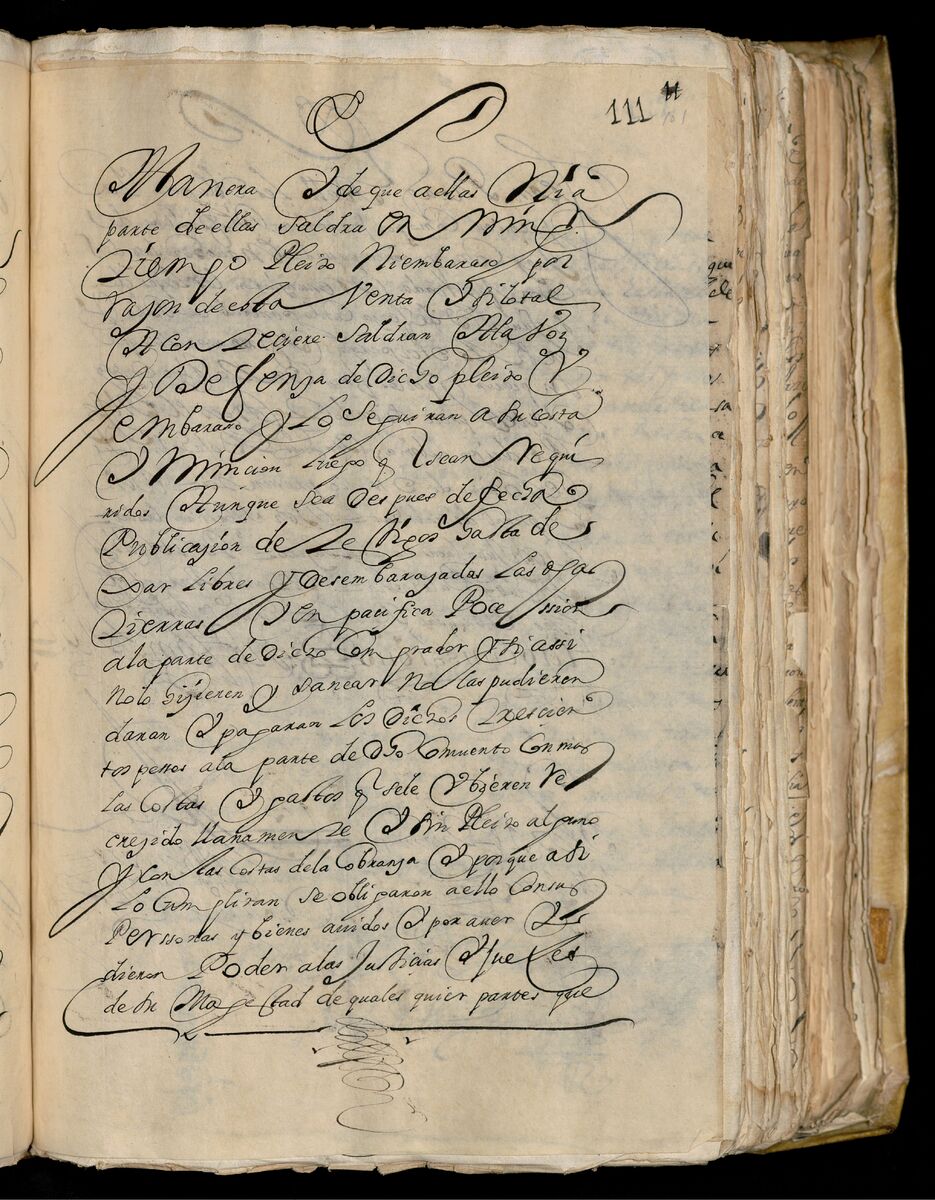 111 11
Manera Y de que a ellas Nia
parte de ellas saldra en Ningn
tiempo Pleito Niembaraso por
rason de esta Venta Y si lo tal
Aconteciere saldran A la Voz
Y Defensa de Dicho pleito Y
embaraso Y Lo seguiran a su costa
Y Mincion Luego q sean Requi
ridos Aunque sea Despues de fecha
Publicasion de Testigos hasta de
xar Libres Y Desembarasadas Las dhas
tierras Y en pacifica Pocession
a la parte de Dicho Comprador Y si assi
no lo hisieren Y sanear No las pudieren
daran Y pagaran Los Dichos trescien
tos pessos a la parte de Dho Comuento Con mas
las Costas Y gastos q se le Ybieren Re
cresido llanamente Y sin Pleito alguno
Y Con las costas de la Cobransa Y porque asi
Lo Cumpliran se obligaron a ello Con sus
Perssonas y bienes auidos Y por aver Y
dieron Poder a las Justicias Y Jueses
de su Magestad de quales quier partes que